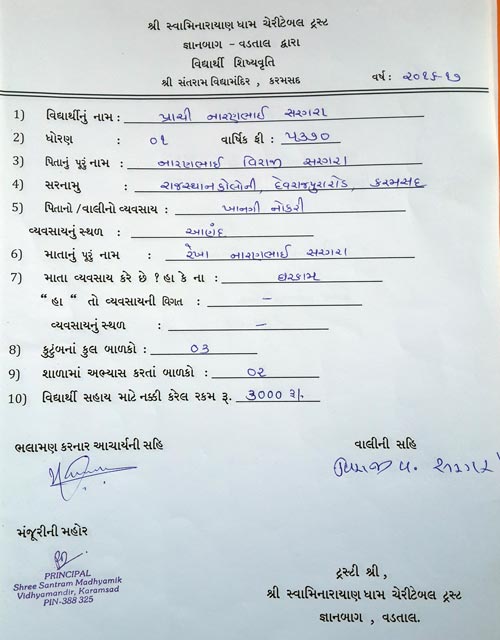 શ્રી સ્વામિનારાયણ ધામ ચેરીટેબલ ટ્રસ્ટ
જ્ઞાનબાગ - વડતાલ દ્વારા
વિદ્યાર્થી શિષ્યવૃતિ
શ્રી સંતરામ વિદ્યામંદિર , કરમસદ
વર્ષ : ૨૦૧૬-૧૭
1) વિદ્યાર્થીનું નામ : પ્રાચી નારણભાઈ સરગરા
2) ધોરણ : ૦૧ વાર્ષિક ફી : ૫૩૭૦
3) પિતાનું પૂરું નામ : નારણભાઈ વિરાજી સરગરા
4) સરનામુ : રાજસ્થાન કોલોની, દેવરાજપુરા રોડ, કરમસદ
5) પિતાનો /વાલીનો વ્યવસાય : ખાનગી નોકરી
વ્યવસાયનું સ્થળ : આણંદ
6) માતાનું પૂરું નામ : રેખા નારાણભાઈ સરગરા
7) માતા વ્યવસાય કરે છે ? હા કે ના : ઘરકામ
“ હા “ તો વ્યવસાયની વિગત : –
વ્યવસાયનું સ્થળ : –
8) કુટુંબનાં કુલ બાળકો : ૦૩
9) શાળામાં અભ્યાસ કરતાં બાળકો : ૦૨
10) વિદ્યાર્થી સહાય માટે નક્કી કરેલ રકમ રૂ. ૩000 રૂ/.
ભલામણ કરનાર આચાર્યની સહિ
વાલીની સહિ
મંજૂરીની મહોર
PRINCIPAL
Shree Santram Madhyamik
Vidhyamandir, Karamsad
PIN-388 325
ટ્રસ્ટી શ્રી ,
શ્રી સ્વામિનારાયણ ધામ ચેરીટેબલ ટ્રસ્ટ
જ્ઞાનબાગ , વડતાલ.